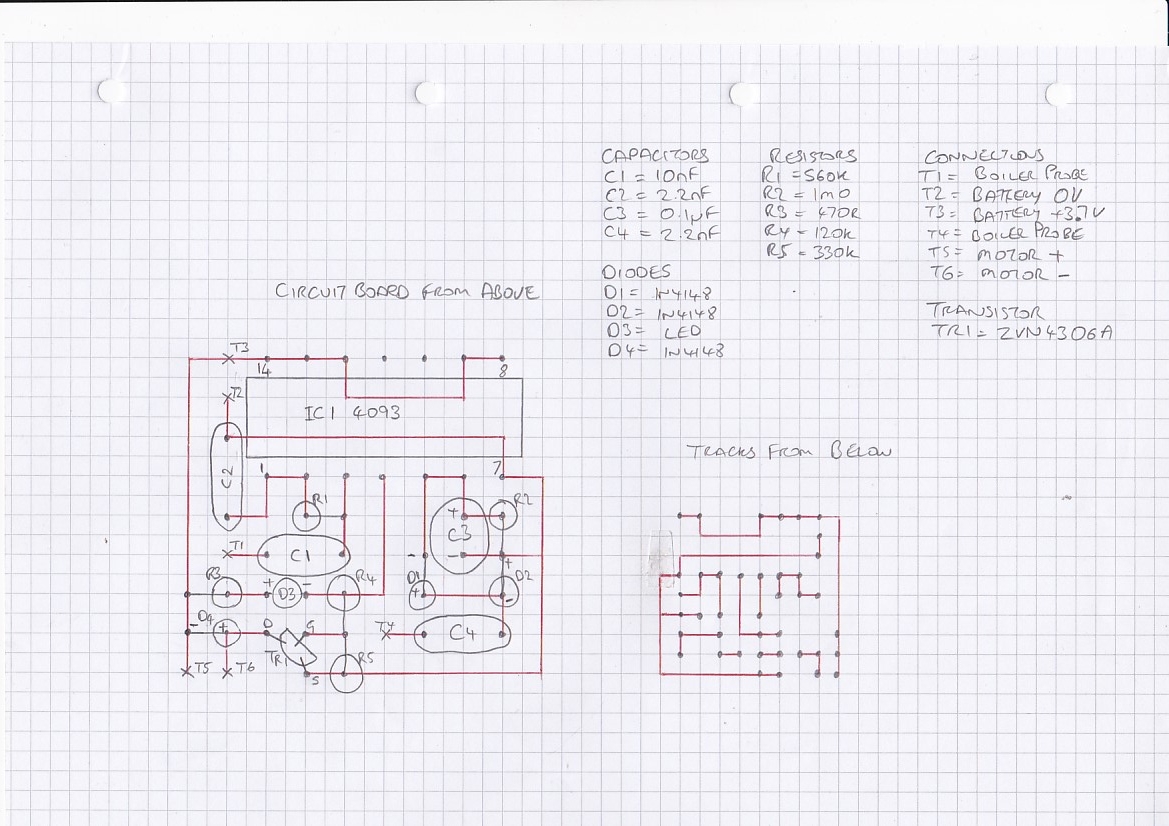 CAPACITORS
C1 = 10nF
C2 = 2.2nF
C3 = 0.1µF
C4 = 2.2nF
DIODES
D1 = 1N4148
D2 = 1N4148
D3 = LED
D4 = 1N4148
RESISTORS
R1 = 560K
R2 = 1MO
R3 = 470R
R4 = 120K
R5 = 330K
CONNECTIONS
T1 = BOILER PROBE
T2 = BATTERY 0V
T3 = BATTERY +3.7V
T4 = BOILER PROBE
T5 = MOTOR +
T6 = MOTOR -
TRANSISTOR
TR1 = ZVN4306A
CIRCUIT BOARD FROM ABOVE
T3
14
8
T2
IC1 4093
C2
1
7
R1
+
R2
C3
T1
C1
-
-
+
R3
+
D3
-
R4
D1
+
D2
-
-
D4
+
D
G
T4
C4
TR1
T5
T6
S
R5
TRACKS FROM BELOW